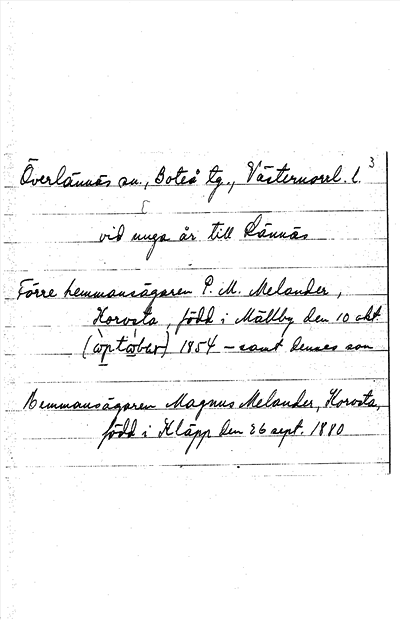 3
Överlännäs sn., Boteå tg., Västernorrl. l.
vid unga år till Lännäs
Förre hemmansägaren P. M. Melander,
Horvsta, född i Mällby den 10 okt.
1854 – samt dennes son
Hemmansägaren Magnus Melander, Horvsta,
född i Kläpp den 26 sept. 1880